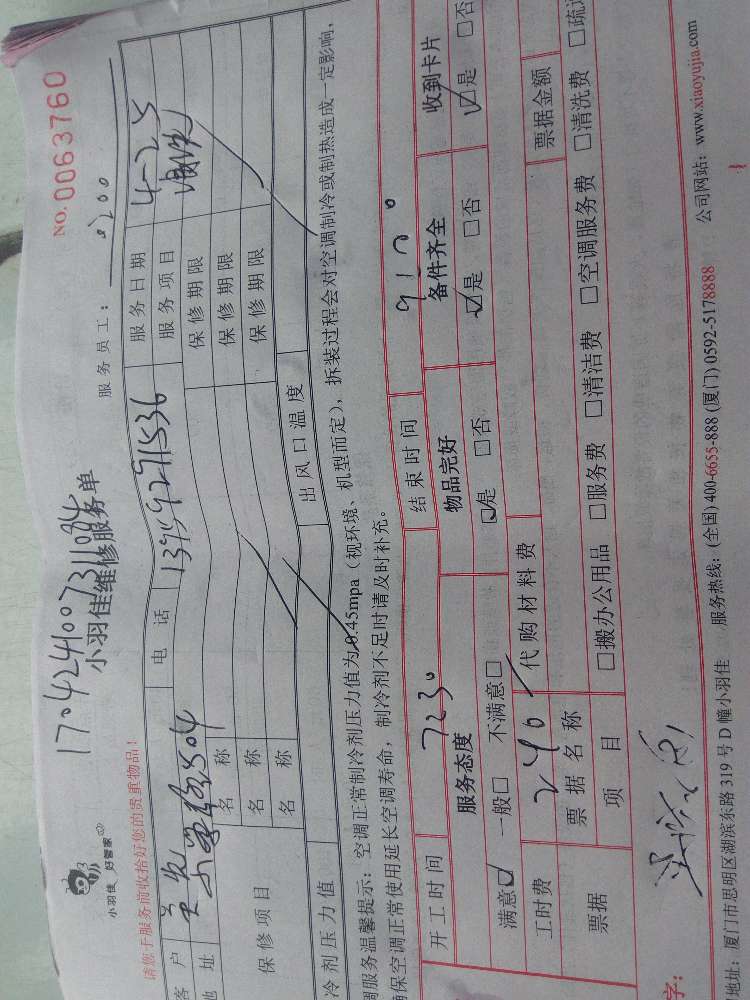 NO. 0063760
170424100731084
小羽佳 好管家
小羽佳维修服务单
请您于服务前收拾好您的贵重物品!
服务员工:
客户 电话 服务日期 4-25
地址 504 服务项目
保修项目 名称 保修期限
名称 保修期限
名称 保修期限
冷剂压力值 出风口温度
调服务温馨提示:空调正常制冷剂压力值为0.45mpa(视环境、机型而定),拆装过程会对空调制冷或制热造成一定影响,
确保空调正常使用延长空调寿命,制冷剂不足时请及时补充。
开工时间 7230 结束时间
服务态度 物品完好 备件齐全 收到卡片
满意☑ 一般□ 不满意□ ☑是 □否 ☑是 □否 ☑是 □否
工时费 240 代购材料费
票据 票据名称 票据金额
项目 □搬办公用品 □服务费 □清洁费 □空调服务费 □清洗费
字:
地址:厦门市思明区湖滨东路319号D幢小羽佳 服务热线:(全国)400-6655-888 (厦门)0592-5178888 公司网站:www.xiaoyujia.com